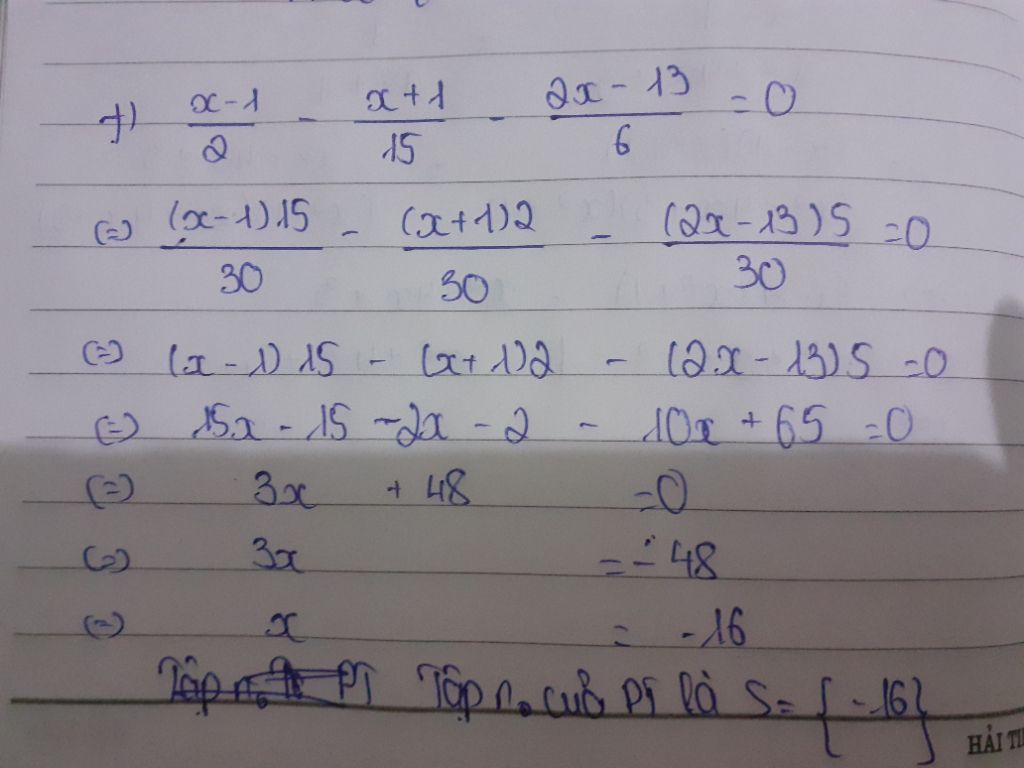 +) (x-1)/2 - (x+1)/15 - (2x-13)/6 = 0
(=) (x-1)15/30 - (x+1)2/30 - (2x-13)5/30 = 0
(=) (x-1)15 - (x+1)2 - (2x-13)5 = 0
(=) 15x - 15 - 2x - 2 - 10x + 65 = 0
(=) 3x + 48 = 0
(=) 3x = - 48
(=) x = -16
Tập n. PT Tập n. của PT là S = {-16}
HẢI